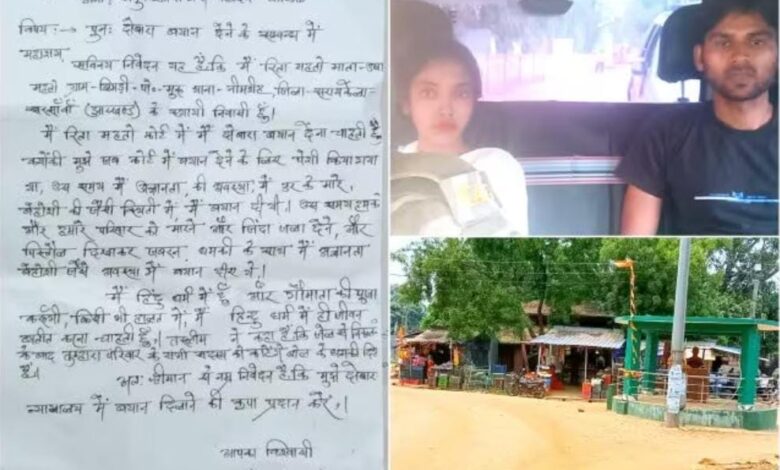 विषय :- पुनः दोबारा बयान देने के सम्बन्ध में
महाशय,
सविनय निवेदन यह है कि मैं रिता महतो माता-उषा
महतो ग्राम- पो०- थाना- नीमडीह, जिला- सरायकेला-
खरसावाँ (झारखण्ड) के स्थायी निवासी हूँ।
मैं रिता महतो कोर्ट में मैं दोबारा बयान देना चाहती हूँ
क्योंकी मुझे जब कोर्ट में बयान देने के लिए पेशी किया गया
था, उस समय मैं अज्ञानता की अवस्था में डर के मारे,
बेहोशी की जैसी स्थिती में, मैं बयान दी थी। उस समय हमको
और हमारे परिवार को मारने और जिंदा जला देने, और
पिस्तौल दिखाकर जबरन धमकी के साथ मैं अज्ञानता
बेहोशी जैसे अवस्था में बयान दी थी।
मैं हिंदु धर्म में हूँ और गौमाता की पूजा
करूंगी, किसी भी हालत में, मैं हिन्दु धर्म में ही जीवन
व्यतीत करना चाहती हूँ। तस्लीम ने कहा है कि जेल से निकलने
के बाद तुम्हारा परिवार के सभी सदस्य को काटेंगे बोल के धमकी दिया
है।
अतः श्रीमान से नम्र निवेदन है कि मुझे दोबारा
न्यायालय में बयान दिलाने की कृपा प्रदान करें।
आपका विश्वासी